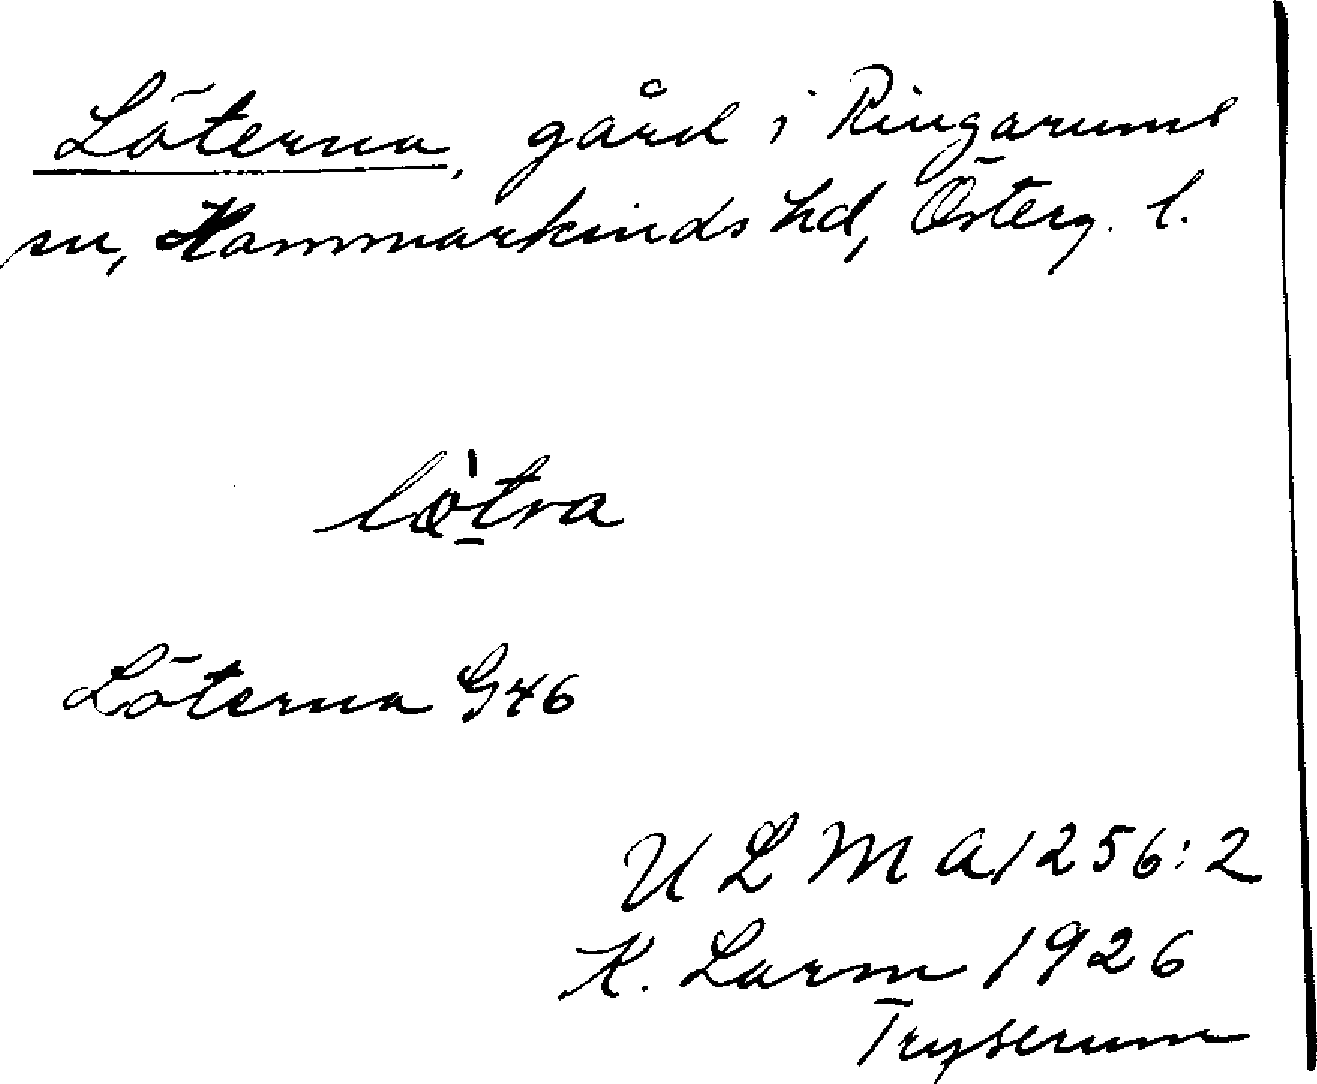 Löterna, gård i Ringarums
sn, Hammarkinds hd, Österg. l.
lö̀tra
Löterna G46
U L M A 1256:2
K. Larm 1926
Tryserum